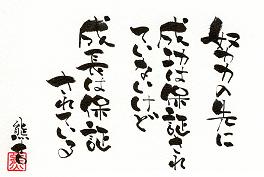 努力の先に
成功は保証され
ていないけど
成長は保証
されている